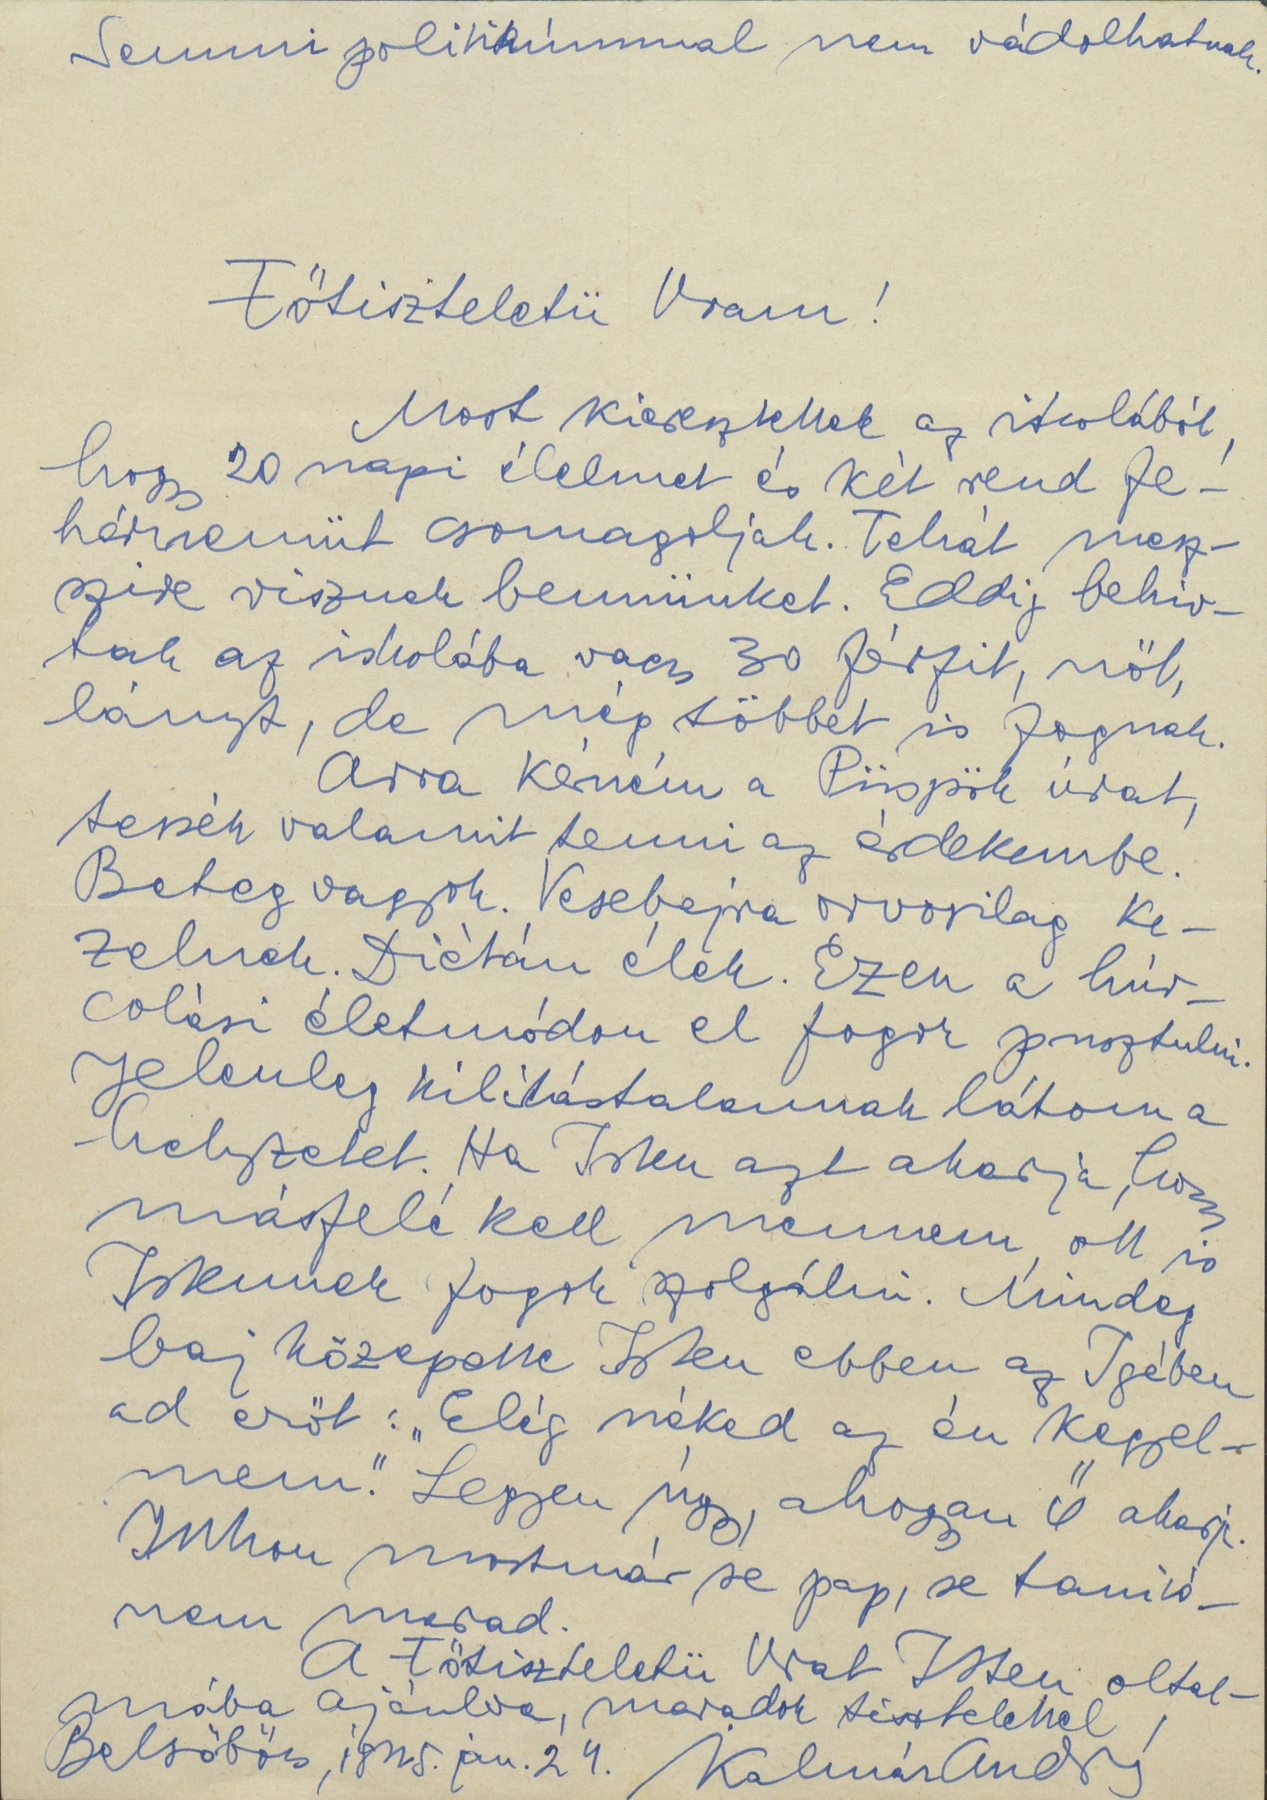 Semmi politikummal nem vádolhatnak.
Főtiszteletü Uram!
Most kieresztettek az iskolából,
hogy 20 napi élelmet és két rend fe-
hérnemüt csomagoljak. Tehát mesz-
szire visznek bennünket. Eddig behiv-
tak az iskolába vagy 30 férfit, nőt,
lányt, de még többet is fognak.
Arra kérném a Püspök úrat,
tessék valamit tenni az érdekembe.
Beteg vagyok. Vesebajra orvosilag ke-
zelnek. Diétán élek. Ezen a húr-
colási életmódon el fogok pusztulni.
Jelenleg kilitástalannak látom a
helyzetet. Ha Isten azt akarja, hogy
másfelé kell mennem, ott is
Istennek fogok szolgálni. Mindég
baj közepette Isten ebben az Igében
ad erőt: „Elég néked az én kegyel-
mem." Legyen úgy, ahogyan Ő akarja.
Itthon mostmár se pap, se tanitó
nem marad.
A Főtiszteletü Urat Isten oltal-
mába ajánlva, maradok tisztelettel,
Belsőbőcs, 1945. jan. 24. Kalmár András